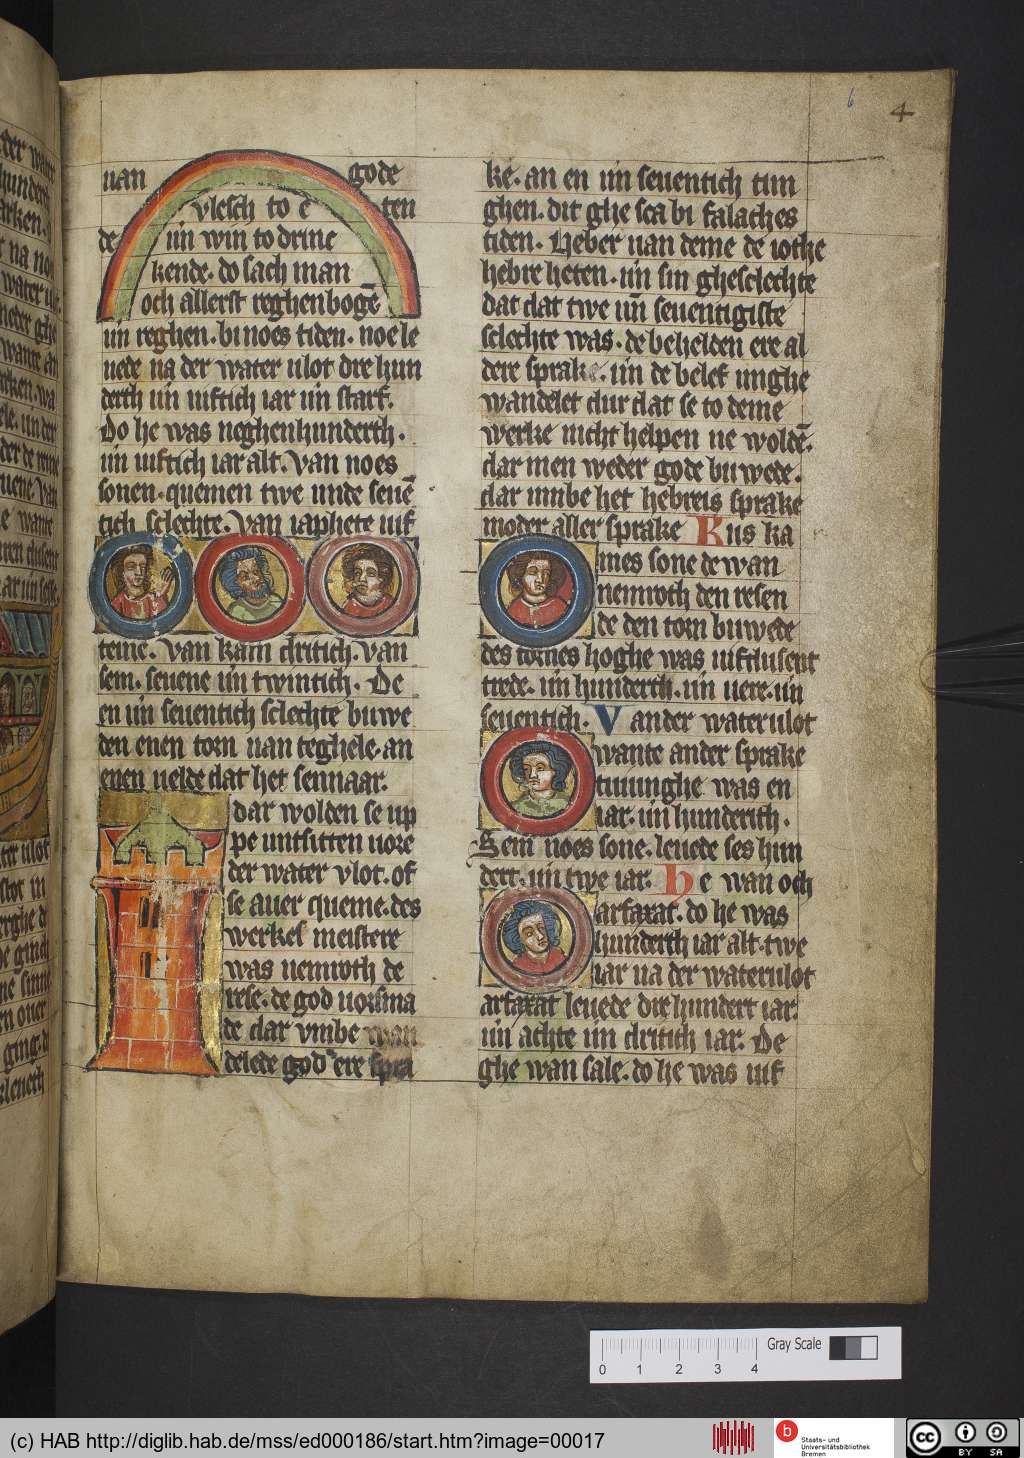 6 4
uan gode
vlesch to etē
de un win to drinc
kende. do sach man
och allerst reghenbogē
un reghen. bi noes tiden. noe le
uede na der water vlot dre hun
derth un uiftich iar un starf.
Do he was neghenhunderth.
un uiftich iar alt. Van noes
sonen. quemen twe unde seuē
tich sclechte. Van iaphete uif
teine. van kam dritich. van
sem. seuene un twintich. De
en un seuentich sclechte buwe
den enen torn uan teghele. an
enen uelde dat het sennaar.
dar wolden se up
pe untsitten uore
der water vlot. of
se auer queme. des
werkes meistere
was nemroth de
rese. de god uorsma
de dar vmbe wan
delede god ere spra
ke. an en un seuentich tun
ghen. dit ghesca bi falaches
tiden. Heber uan deme de iothe
hebre heten. un sin gheslechte
dat dat twe un seuentigiste
sclechte was. de behelden ere al
dere sprake. un de belef unghe
wandelet dur dat se to deme
werke nicht helpen ne woldē.
dar men weder gode buwede.
dar umbe het hebreis sprake
moder aller sprake Kus ka
mes sone de wan
nemroth den resen
de den torn buwede
des tornes hoghe was uifdusent
trede. un hunderth. un uere. un
seuentich. Van der water ulot
wante an der sprake
tuuinghe was en
iar. un hunderth.
Sem noes sone. leuede ses hun
dert. un twe iar. He wan och
arfaxat. do he was
hunderth iar alt. twe
iar na der water ulot
arfaxat leuede drehundert iar.
un achte un dritich iar. De
ghe wan sale. do he was uif
Gray Scale
0 1 2 3 4
(c) HAB http://diglib.hab.de/mss/ed000186/start.htm?image=00017
b
Staats- und
Universitätsbibliothek
Bremen
cc
BY SA